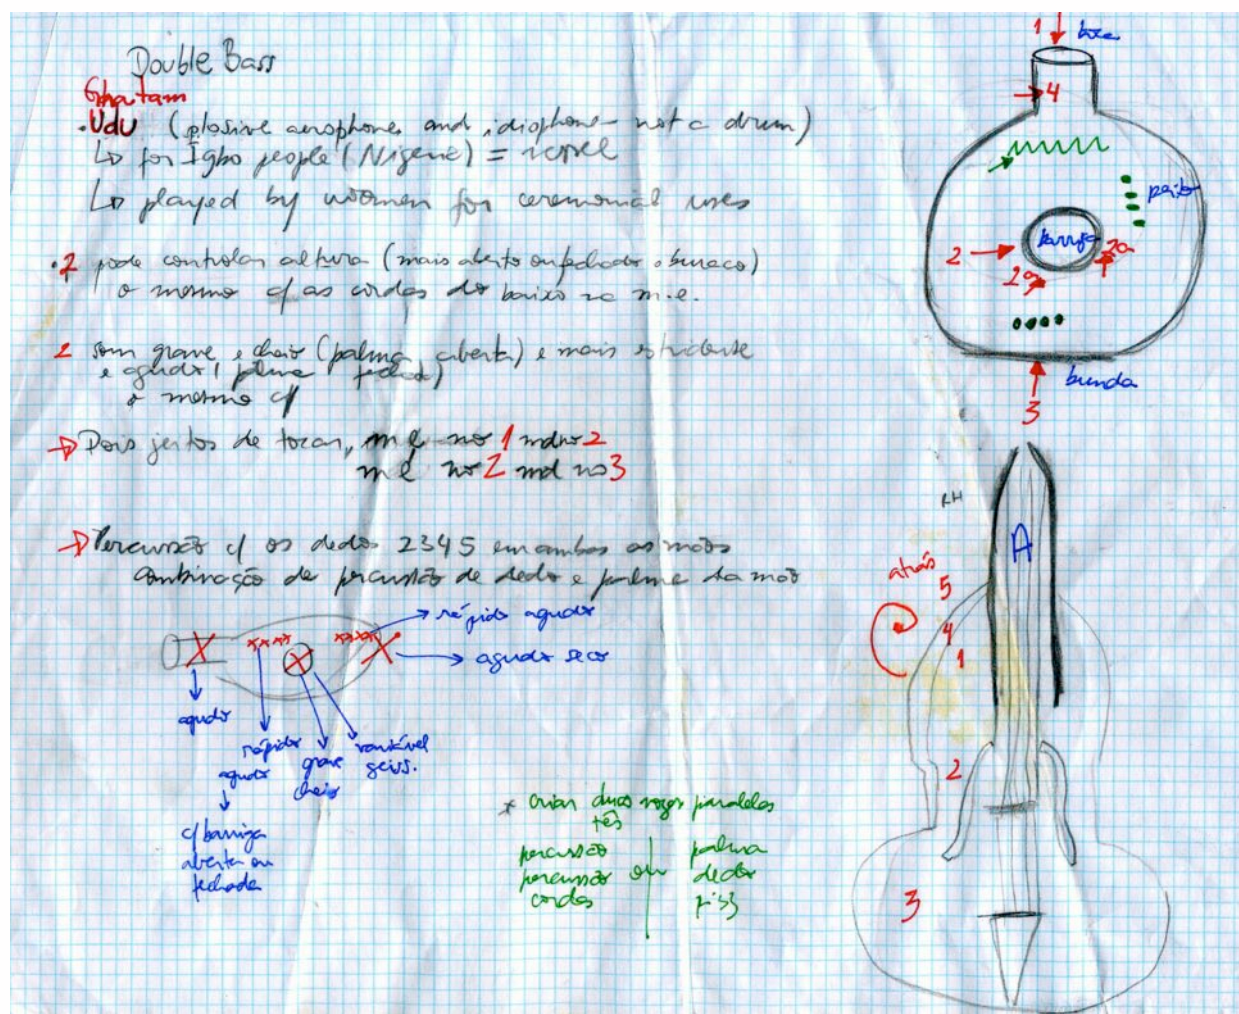 Double Bass
Ghatam
.Udu (plosive aerophone and idiophone - not a drum)
↳ for Igbo people (Nigeria) = vessel
↳ played by women for ceremonial uses
.2 pode controlar altura (mais aberto ou fechado o buraco)
o mesmo c/ as cordas do baixo na m.e.
2 som grave e cheio (palma aberta) e mais estridente
e agudo (palma fechada)
o mesmo c/
→ Dois jeitos de tocar, m e no 1 md no 2
m e no 2 md no 3
→ Percussão c/ os dedos 2345 em ambas as mãos
combinação de percussão de dedo e palma da mão
→ rápido agudo
→ agudo seco
agudo
rápido
agudo
grave
cheio
variável
c/ barriga
aberta ou
fechada
* criar duas vozes paralelas
três
percussão
percussão ou
cordas
palma
dedo
1 boca
4
peito
barriga
2
2a
2a
3
bunda
RH
A
atrás
5
4
1
2
3